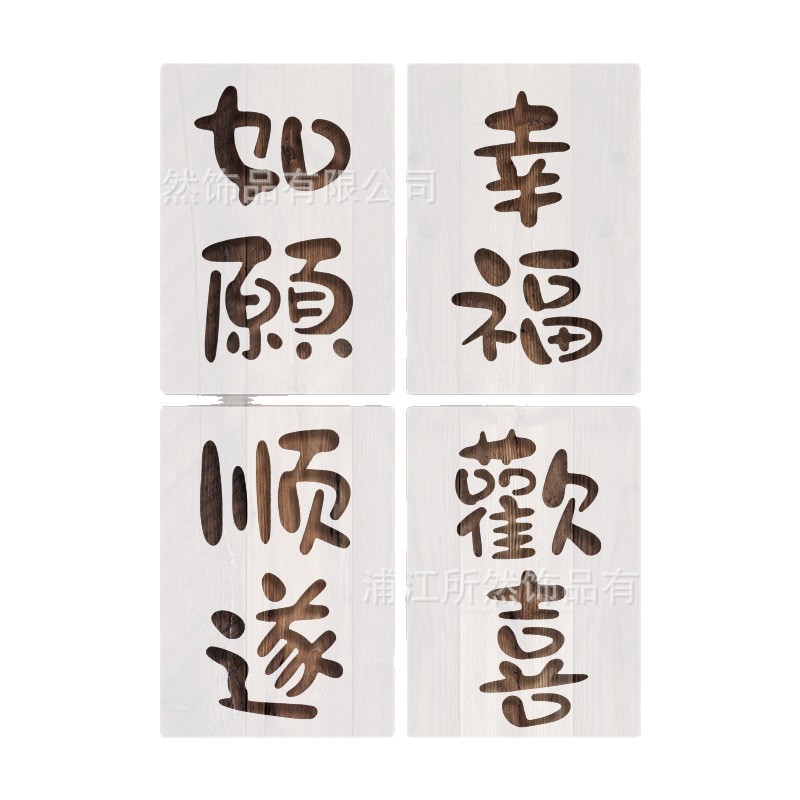 如願
幸福
然饰品有限公司
顺遂
歡喜
浦江所然饰品有